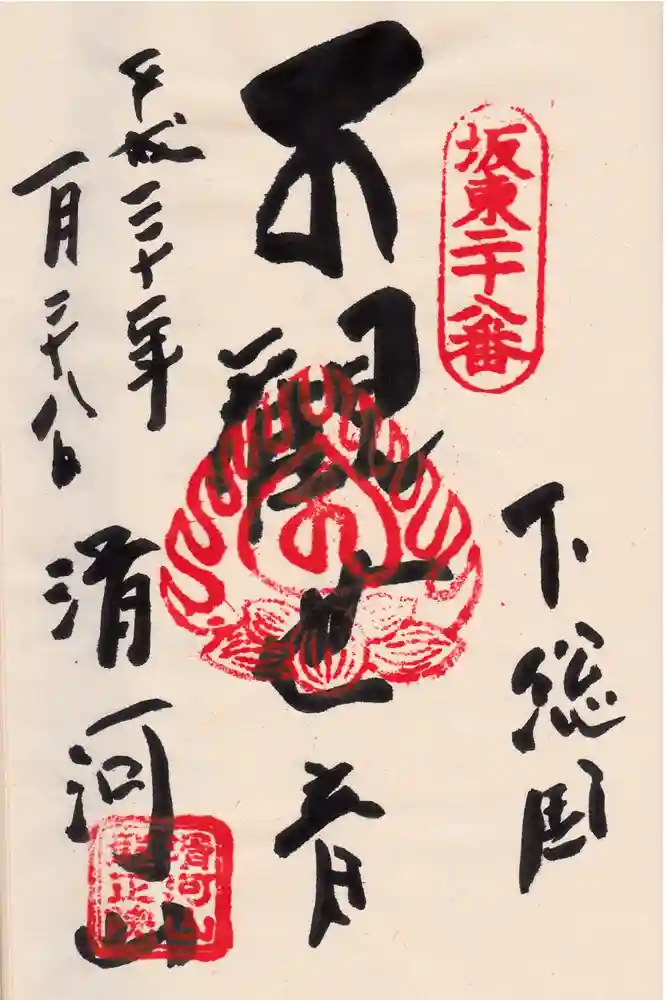 坂東二十八番
下総国
不観世音
平成三十年
一月二十八日
滑河山
滑河山
龍正院